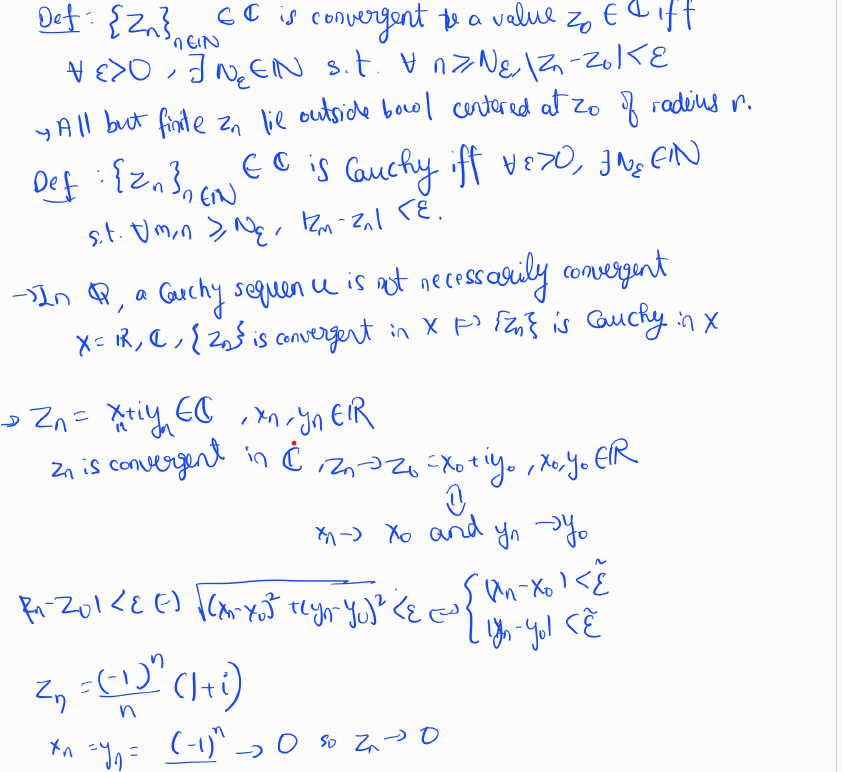 Def: {Zn}n∈ℕ ∈ ℂ is convergent to a value z₀ ∈ ℂ iff
∀ ε>0, ∃ Nε∈ℕ s.t. ∀ n≥Nε, |Zn-Z₀|<ε
→ All but finite Zn lie outside bowl centered at Z₀ of radius r.
Def: {Zn}n∈ℕ ∈ ℂ is Cauchy iff ∀ε>0, ∃Nε∈ℕ
s.t. ∀m,n ≥ Nε, |Zm-Zn| <ε.
→ In ℚ, a Cauchy sequence is not necessarily convergent
X=ℝ, ℂ, {Zn} is convergent in X ⇔ {Zn} is Cauchy in X
→ Zn = xn+iyn ∈ℂ, xn, yn ∈ℝ
Zn is convergent in ℂ, Zn→Z₀ = x₀+iy₀, x₀,y₀ ∈ℝ
⇕
xn→ x₀ and yn →y₀
|Zn-Z₀| <ε ⇔ √(xn-x₀)²+(yn-y₀)² <ε ⇔ { |xn-x₀| <ε̃
|yn-y₀| <ε̃
Zn = (-1)ⁿ/n (1+i)
xn = yn = (-1)ⁿ → 0 so Zn → 0